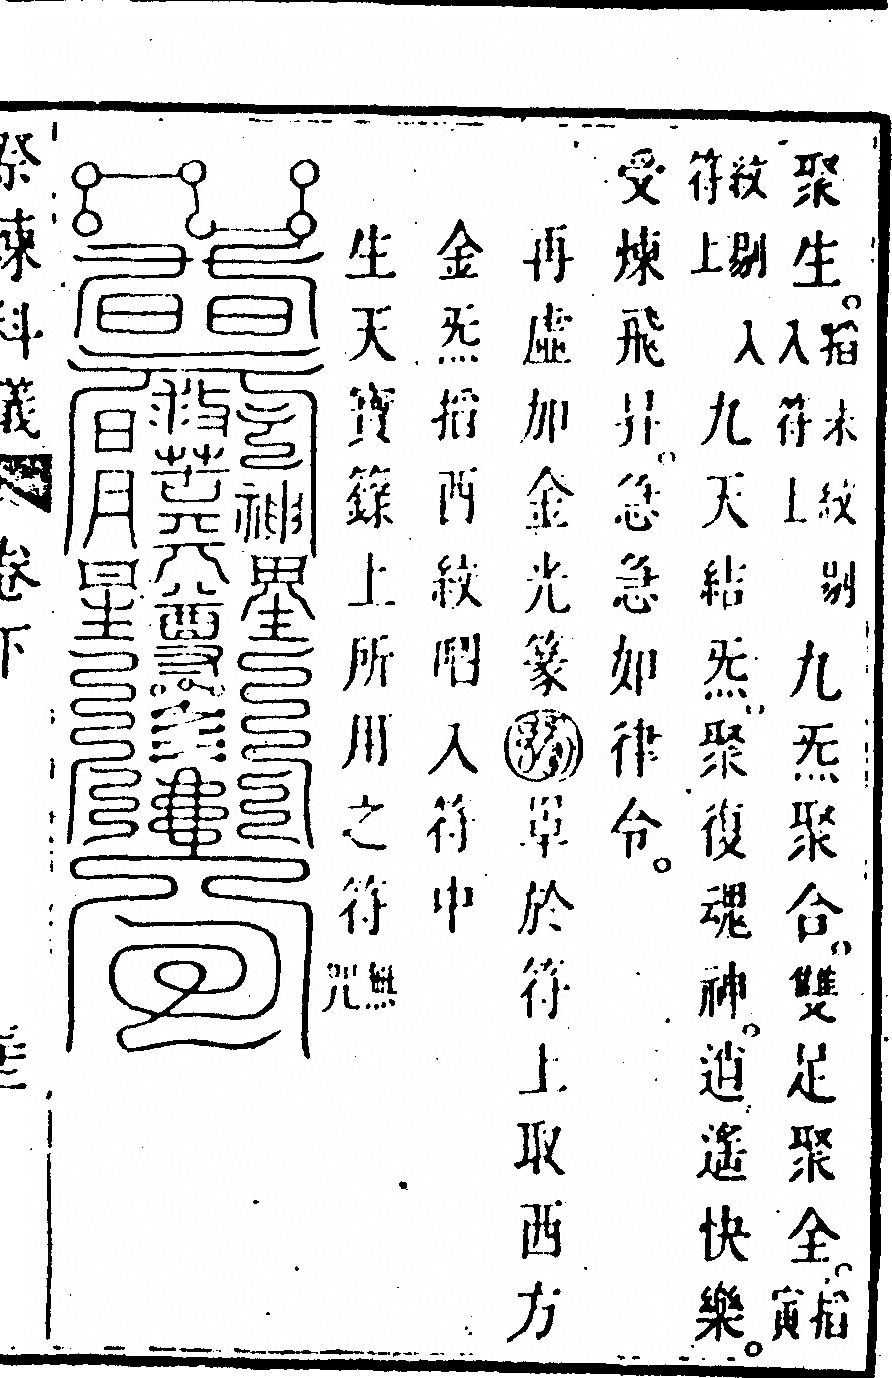 聚生。掐未紋剔入符上九炁聚合。雙足聚全。掐寅
紋剔入符上九天結炁。聚復魂神。逍遙快樂。
受煉飛昇。急急如律令。
再虛加金光篆草於符上取西方
金炁掐酉紋唱入符中
生天寶籙上所用之符無咒
日月星
祭煉科儀卷下